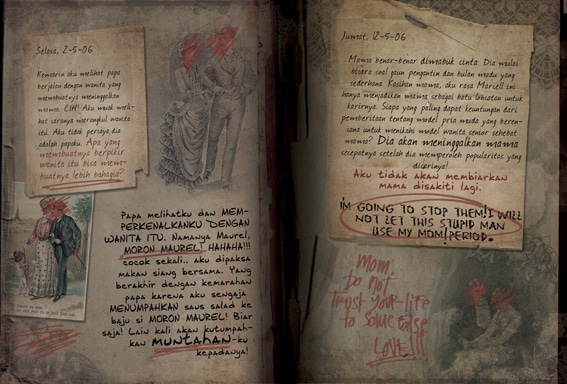 Selasa, 2-5-06
Kemarin aku melihat papa
berjalan dengan wanita yang
membuatnya meninggalkan
mama. CIH! Aku muak meli-
hat caranya merangkul wanita
itu. Aku tidak percaya dia
adalah papaku. Apa yang
membuatnya berpikir
wanita itu bisa mem-
buatnya lebih bahagia?
Papa melihatku dan MEM-
PERKENALKANKU DENGAN
WANITA ITU. Namanya Maurel,
MORON MAUREL! HAHAHA!!!
cocok sekali.. aku dipaksa
makan siang bersama. Yang
berakhir dengan kemarahan
papa karena aku sengaja
MENUMPAHKAN saus salad ke
baju si MORON MAUREL! Biar
saja! Lain kali akan kutumpah-
kan MUNTAHAN-ku
kepadanya!
Jumat, 12-5-06
Mama benar-benar dimabuk cinta. Dia mulai
bicara soal gaun pengantin dan bulan madu yang
sederhana. Kasihan mama, aku rasa Marcell ini
hanya menjadikan mama sebagai batu loncatan untuk
karirnya. Siapa yang paling dapat keuntungan dari
pemberitaan tentang model pria muda yang beren-
cana untuk menikahi model wanita senior sehebat
mama? Dia akan meninggalkan mama
secepatnya setelah dia memperoleh popularitas yang
diincarnya!
Aku tidak akan membiarkan
mama disakiti lagi.
I'M GOING TO STOP THEM! I WILL
NOT LET THIS STUPID MAN
USE MY MOM! PERIOD.
Mom,
do not
trust your life
to some false
LOVE!!!